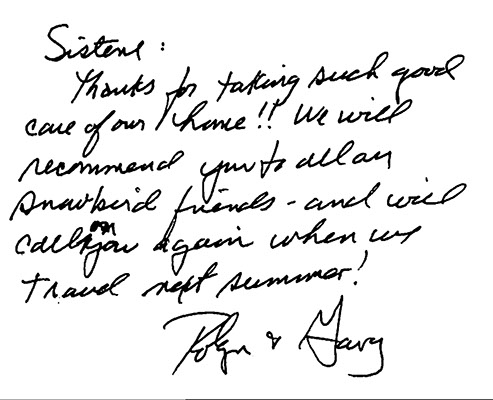 Sisters:
Thanks for taking such good
care of our home!! We will
recommend you to all our
snowbird friends - and will
call on you again when we
travel next summer!
& Gary